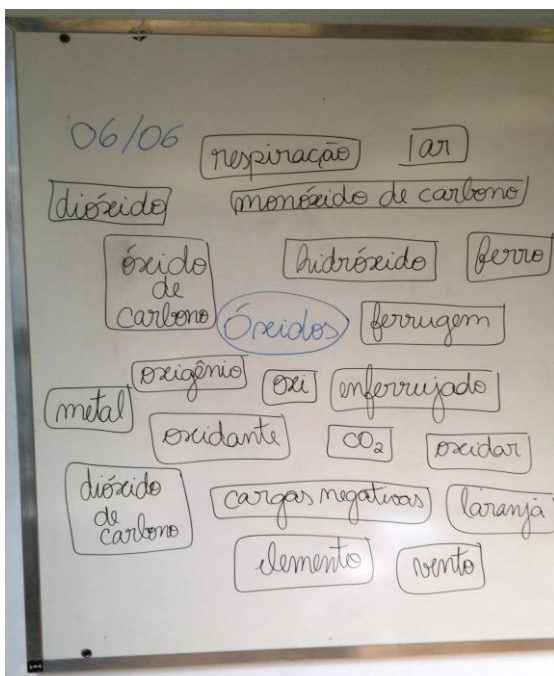 06/06
respiração
ar
dióxido
monóxido de carbono
óxido
de
carbono
hidróxido
ferro
Óxidos
ferrugem
oxigênio
oxi
enferrujado
metal
oxidante
CO₂
oxidar
dióxido
de
carbono
cargas negativas
laranja
elemento
vento